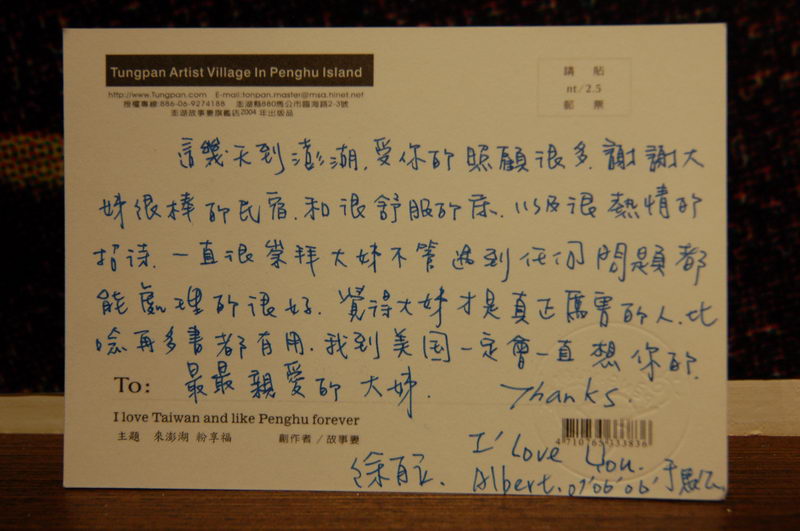 Tungpan Artist Village In Penghu Island
http://www.Tungpan.com E-mail:tonpan.master@msa.hinet.net
授權專線:886-06-9274188 澎湖縣880馬公市臨海路2-3號
澎湖故事妻旗艦店2004年出版品
請 貼
nt/2.5
郵 票
這幾天到澎湖,受你的照顧很多,謝謝大
姊很棒的民宿,和很舒服的床,以及很熱情的
招待,一直很崇拜大姊不管遇到任何問題都
能處理的很好,覺得大姊才是真正厲害的人,比
唸再多書都有用,我到美国一定會一直想你的,
To: 最最親愛的大姊.
Thanks.
I love Taiwan and like Penghu forever
主題 來澎湖 紛享福 創作者/故事妻
4 710765 333836
I Love You.
Albert. 07'06'06'